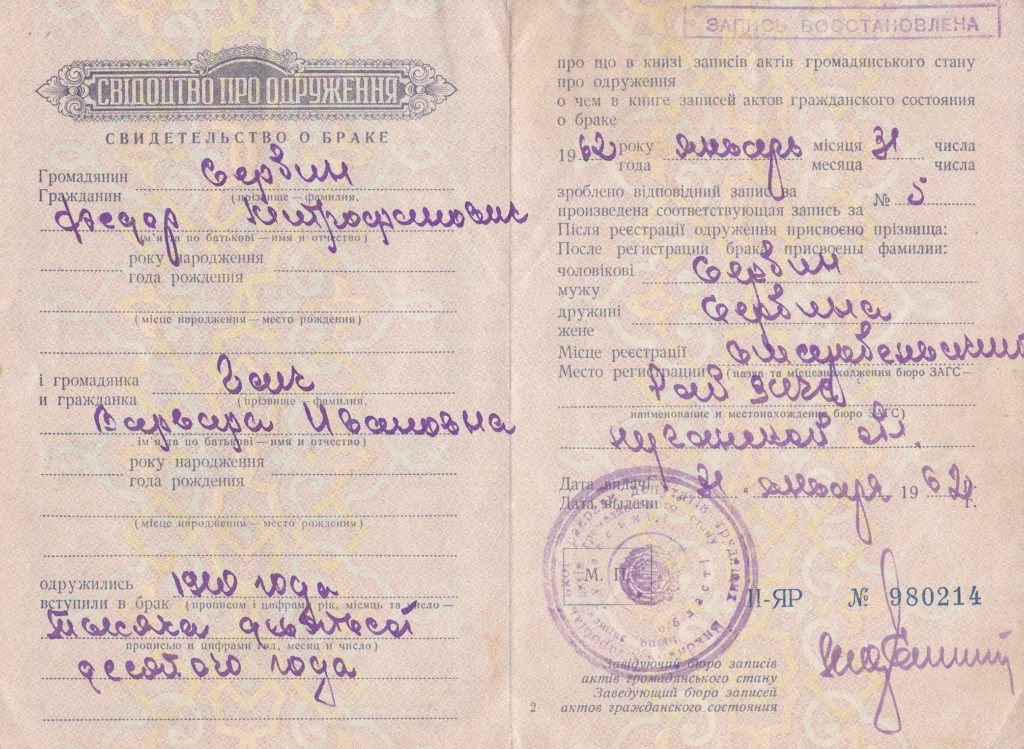 СВІДОЦТВО ПРО ОДРУЖЕННЯ
СВИДЕТЕЛЬСТВО О БРАКЕ
Громадянин
Гражданин Сербин
(прізвище — фамилия,
Федор Митрофанович
(ім'я та по батькові — имя и отчество)
року народження
года рождения
(місце народження — место рождения)
і громадянка
и гражданка Гайч
(прізвище — фамилия,
Варвара Ивановна
ім'я та по батькові — имя и отчество)
року народження
года рождения
(місце народження — место рождения)
одружились 1910 года
вступили в брак (прописом і цифрами рік, місяць та число —
Тысяча девятьсот
прописью и цифрами год, месяц и число)
десятого года
ЗАПИСЬ ВОССТАНОВЛЕНА
про що в книзі записів актів громадянського стану
про одруження
о чем в книге записей актов гражданского состояния
о браке
19 62 року январь місяця 31 числа
года месяца числа
зроблено відповідний запис за
произведена соответствующая запись за № 5
Після реєстрації одруження присвоєно прізвища:
После регистрации брака присвоены фамилии:
чоловікові Сербин
мужу
дружині Сербина
жене
Місце реєстрації
Место регистрации (назва та місцезнаходження бюро ЗАГС —
Рай ЗАГС
наименование и местонахождение бюро ЗАГС)
Луганской обл.
Дата видачі 31 " января 19 62 р.
Дата выдачи г.
М. П.
II-ЯР № 980214
Завідуючий бюро записів
актів громадянського стану
Заведующий бюро записей
2 актов гражданского состояния